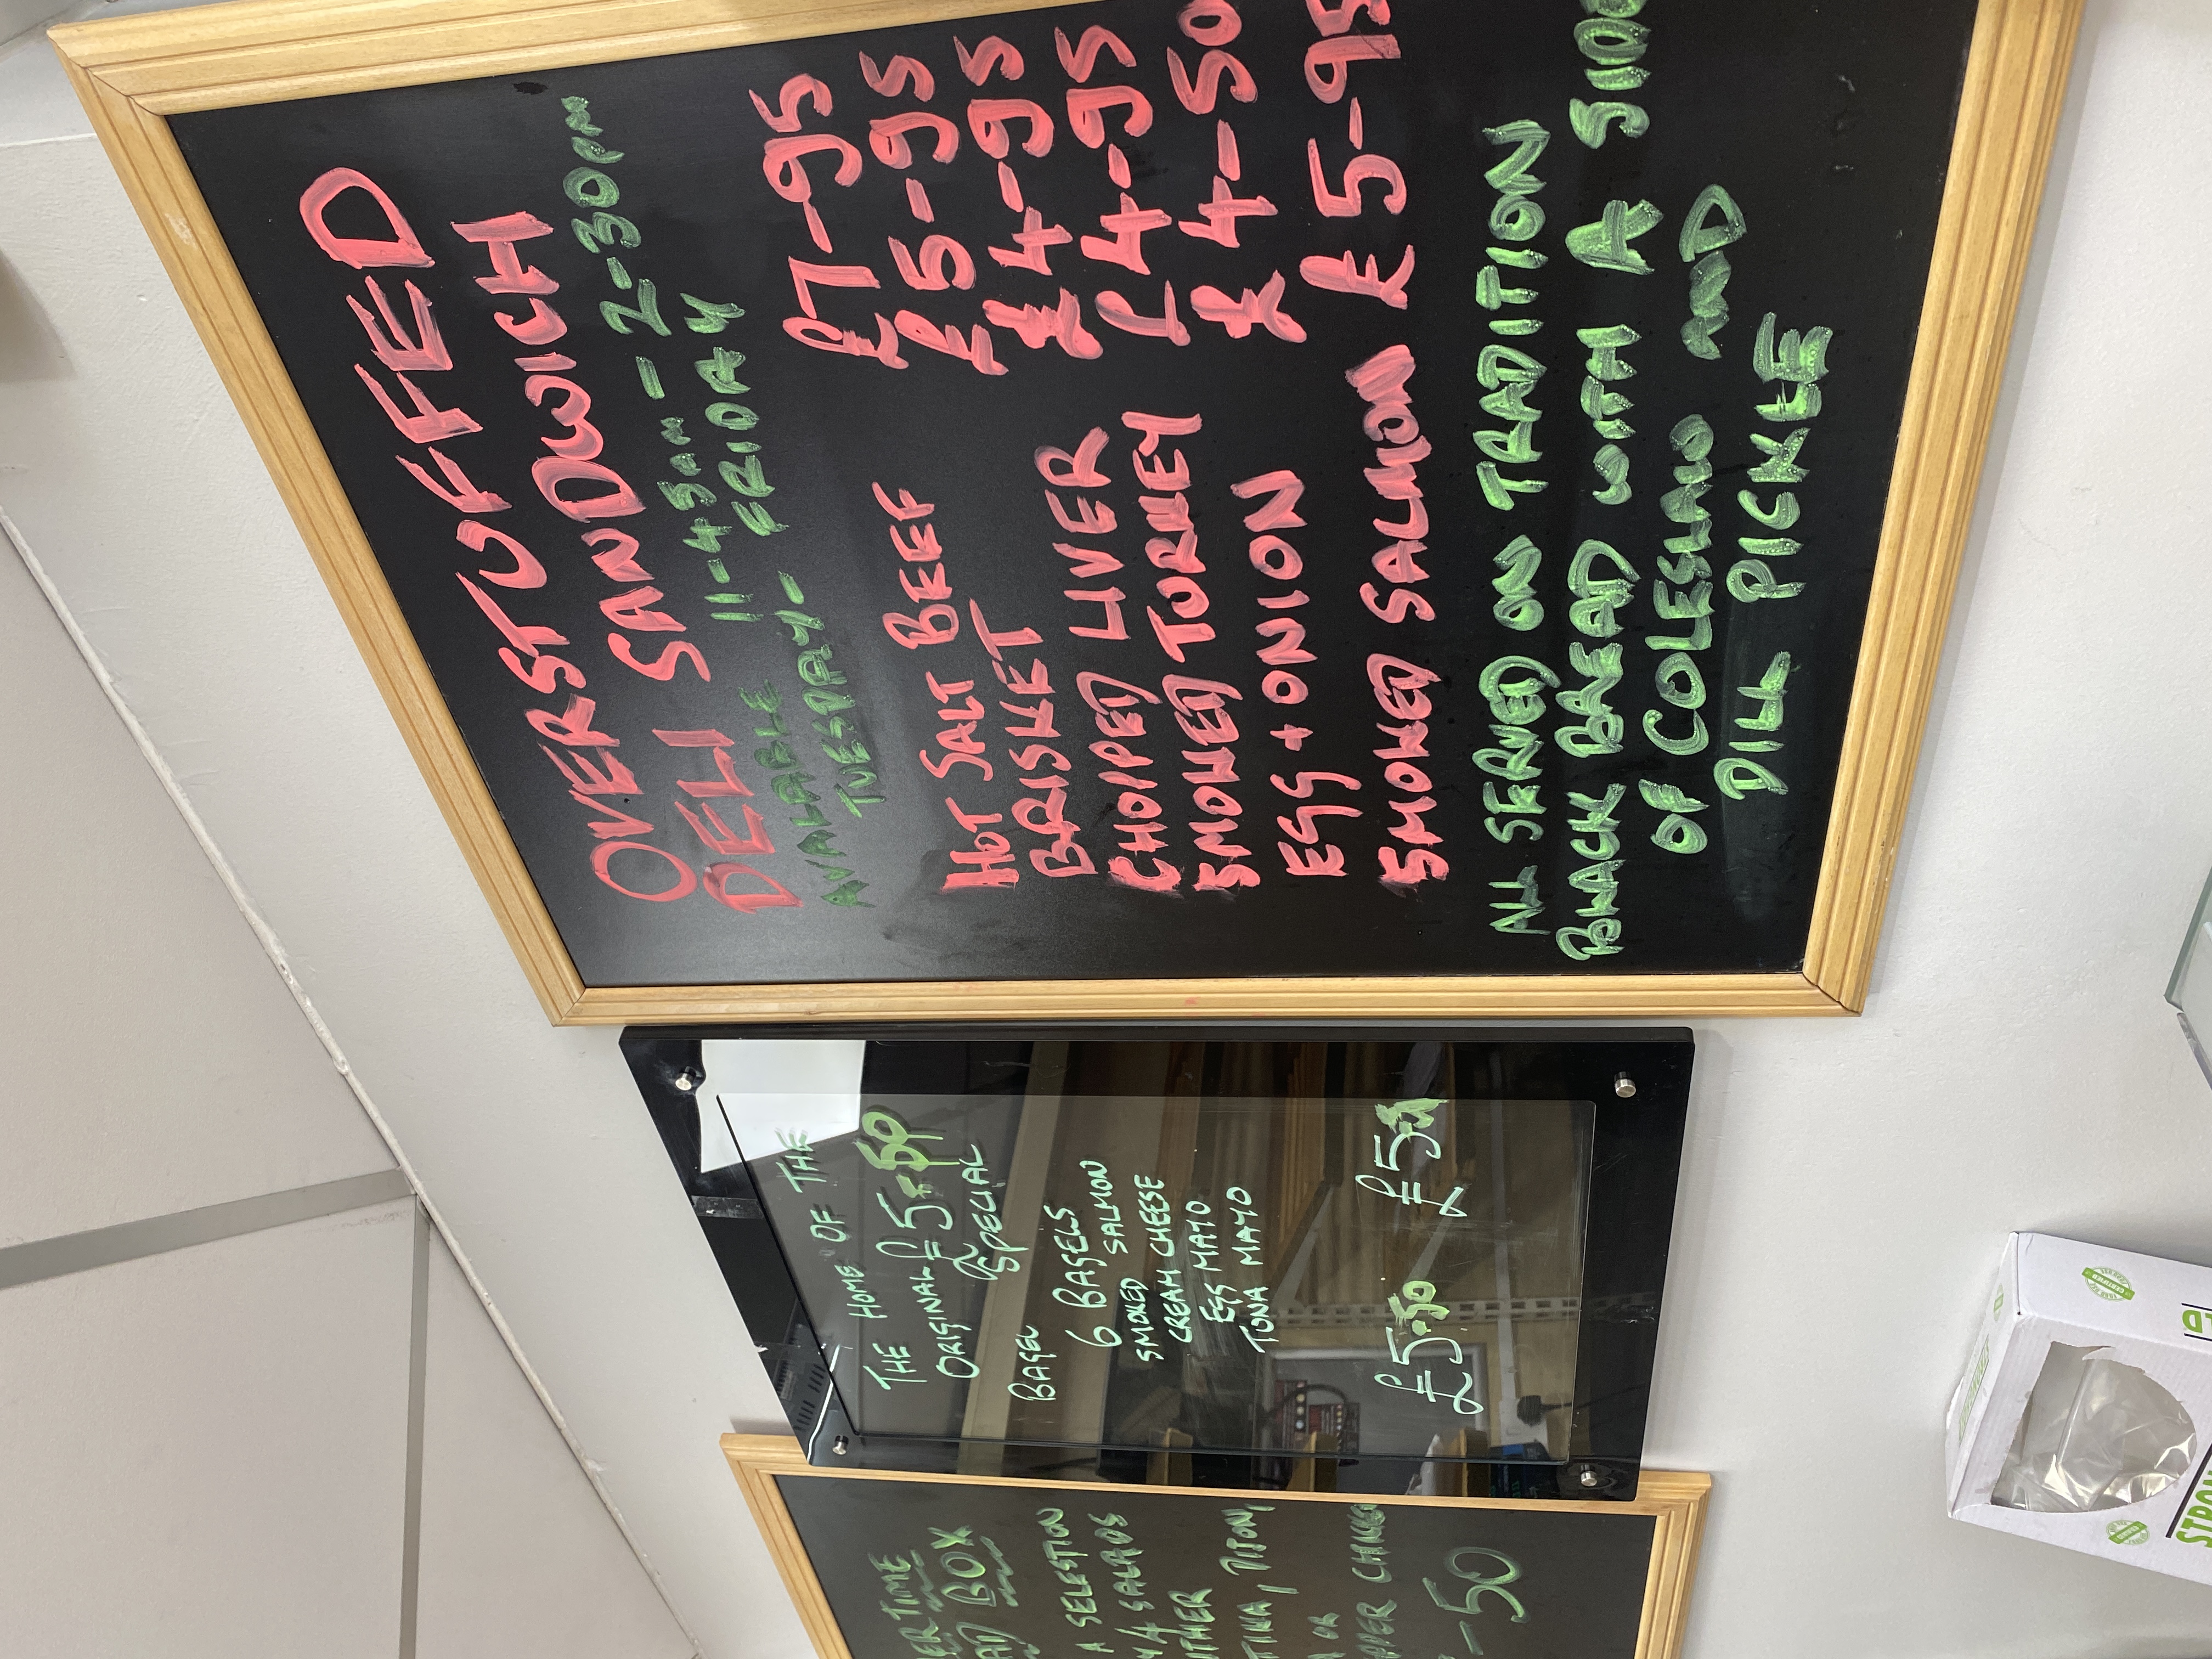 OVERSTUFFED
DELI SANDWICH
AVALABLE 11-45AM - 2-30PM
TUESDAY- FRIDAY
HOT SALT BEEF £7-95
BRISKET £5-95
CHOPPED LIVER £4-95
SMOKED TURKEY £4-95
EGG + ONION £4-50
SMOKED SALMON £5-95
ALL SERVED ON TRADITION
BLACK BREAD WITH A SIDE
OF COLESLAW AND
DILL PICKLE
THE HOME OF THE
ORIGINAL £5.50
BAGEL SPECIAL
6 BAGELS
SMOKED SALMON
CREAM CHEESE
EGG MAYO
TUNA MAYO
£5.50 £5
TIME
BOX
A SELESTION
4 SALADS
OR
-50